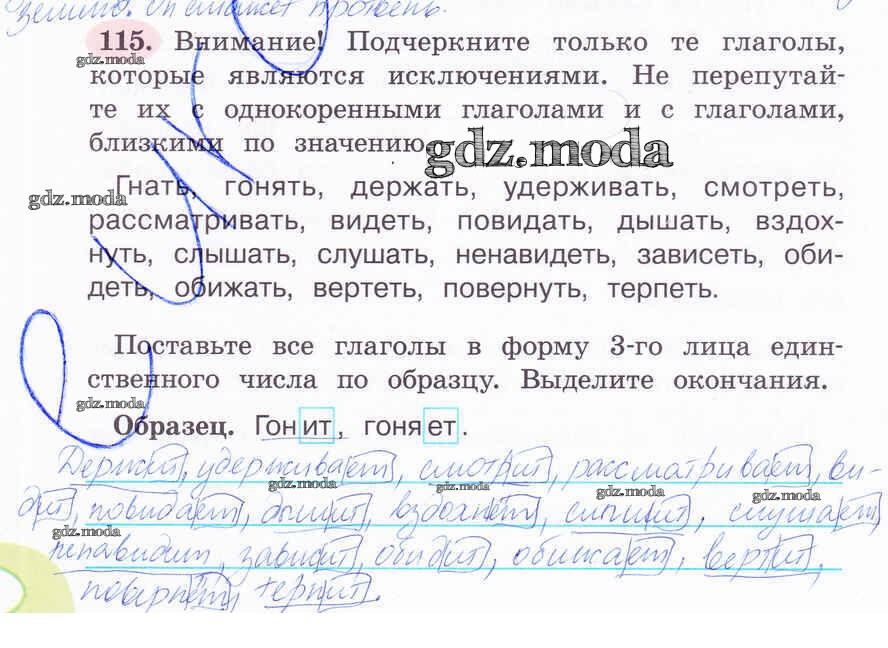 землю. Он сможет
115. Внимание! Подчеркните только те глаголы,
gdz.moda
которые являются исключениями. Не перепутай-
те их с однокоренными глаголами и с глаголами,
близкими по значению.
gdz.moda
Гнать, гонять, держать, удерживать, смотреть,
gdz.moda
рассматривать, видеть, повидать, дышать, вздох-
нуть, слышать, слушать, ненавидеть, зависеть, оби-
деть, обижать, вертеть, повернуть, терпеть.
Поставьте все глаголы в форму 3-го лица един-
ственного числа по образцу. Выделите окончания.
gdz.moda
Образец. Гонит, гоняет.
Держит, удерживает, смотрит, рассматривает, ви-
gdz.moda gdz.moda gdz.moda
дит, повидает, дышит, вздохнёт, слышит, слушает
gdz.moda
ненавидит, зависит, обидит, обижает, вертит,
повернёт, терпит.